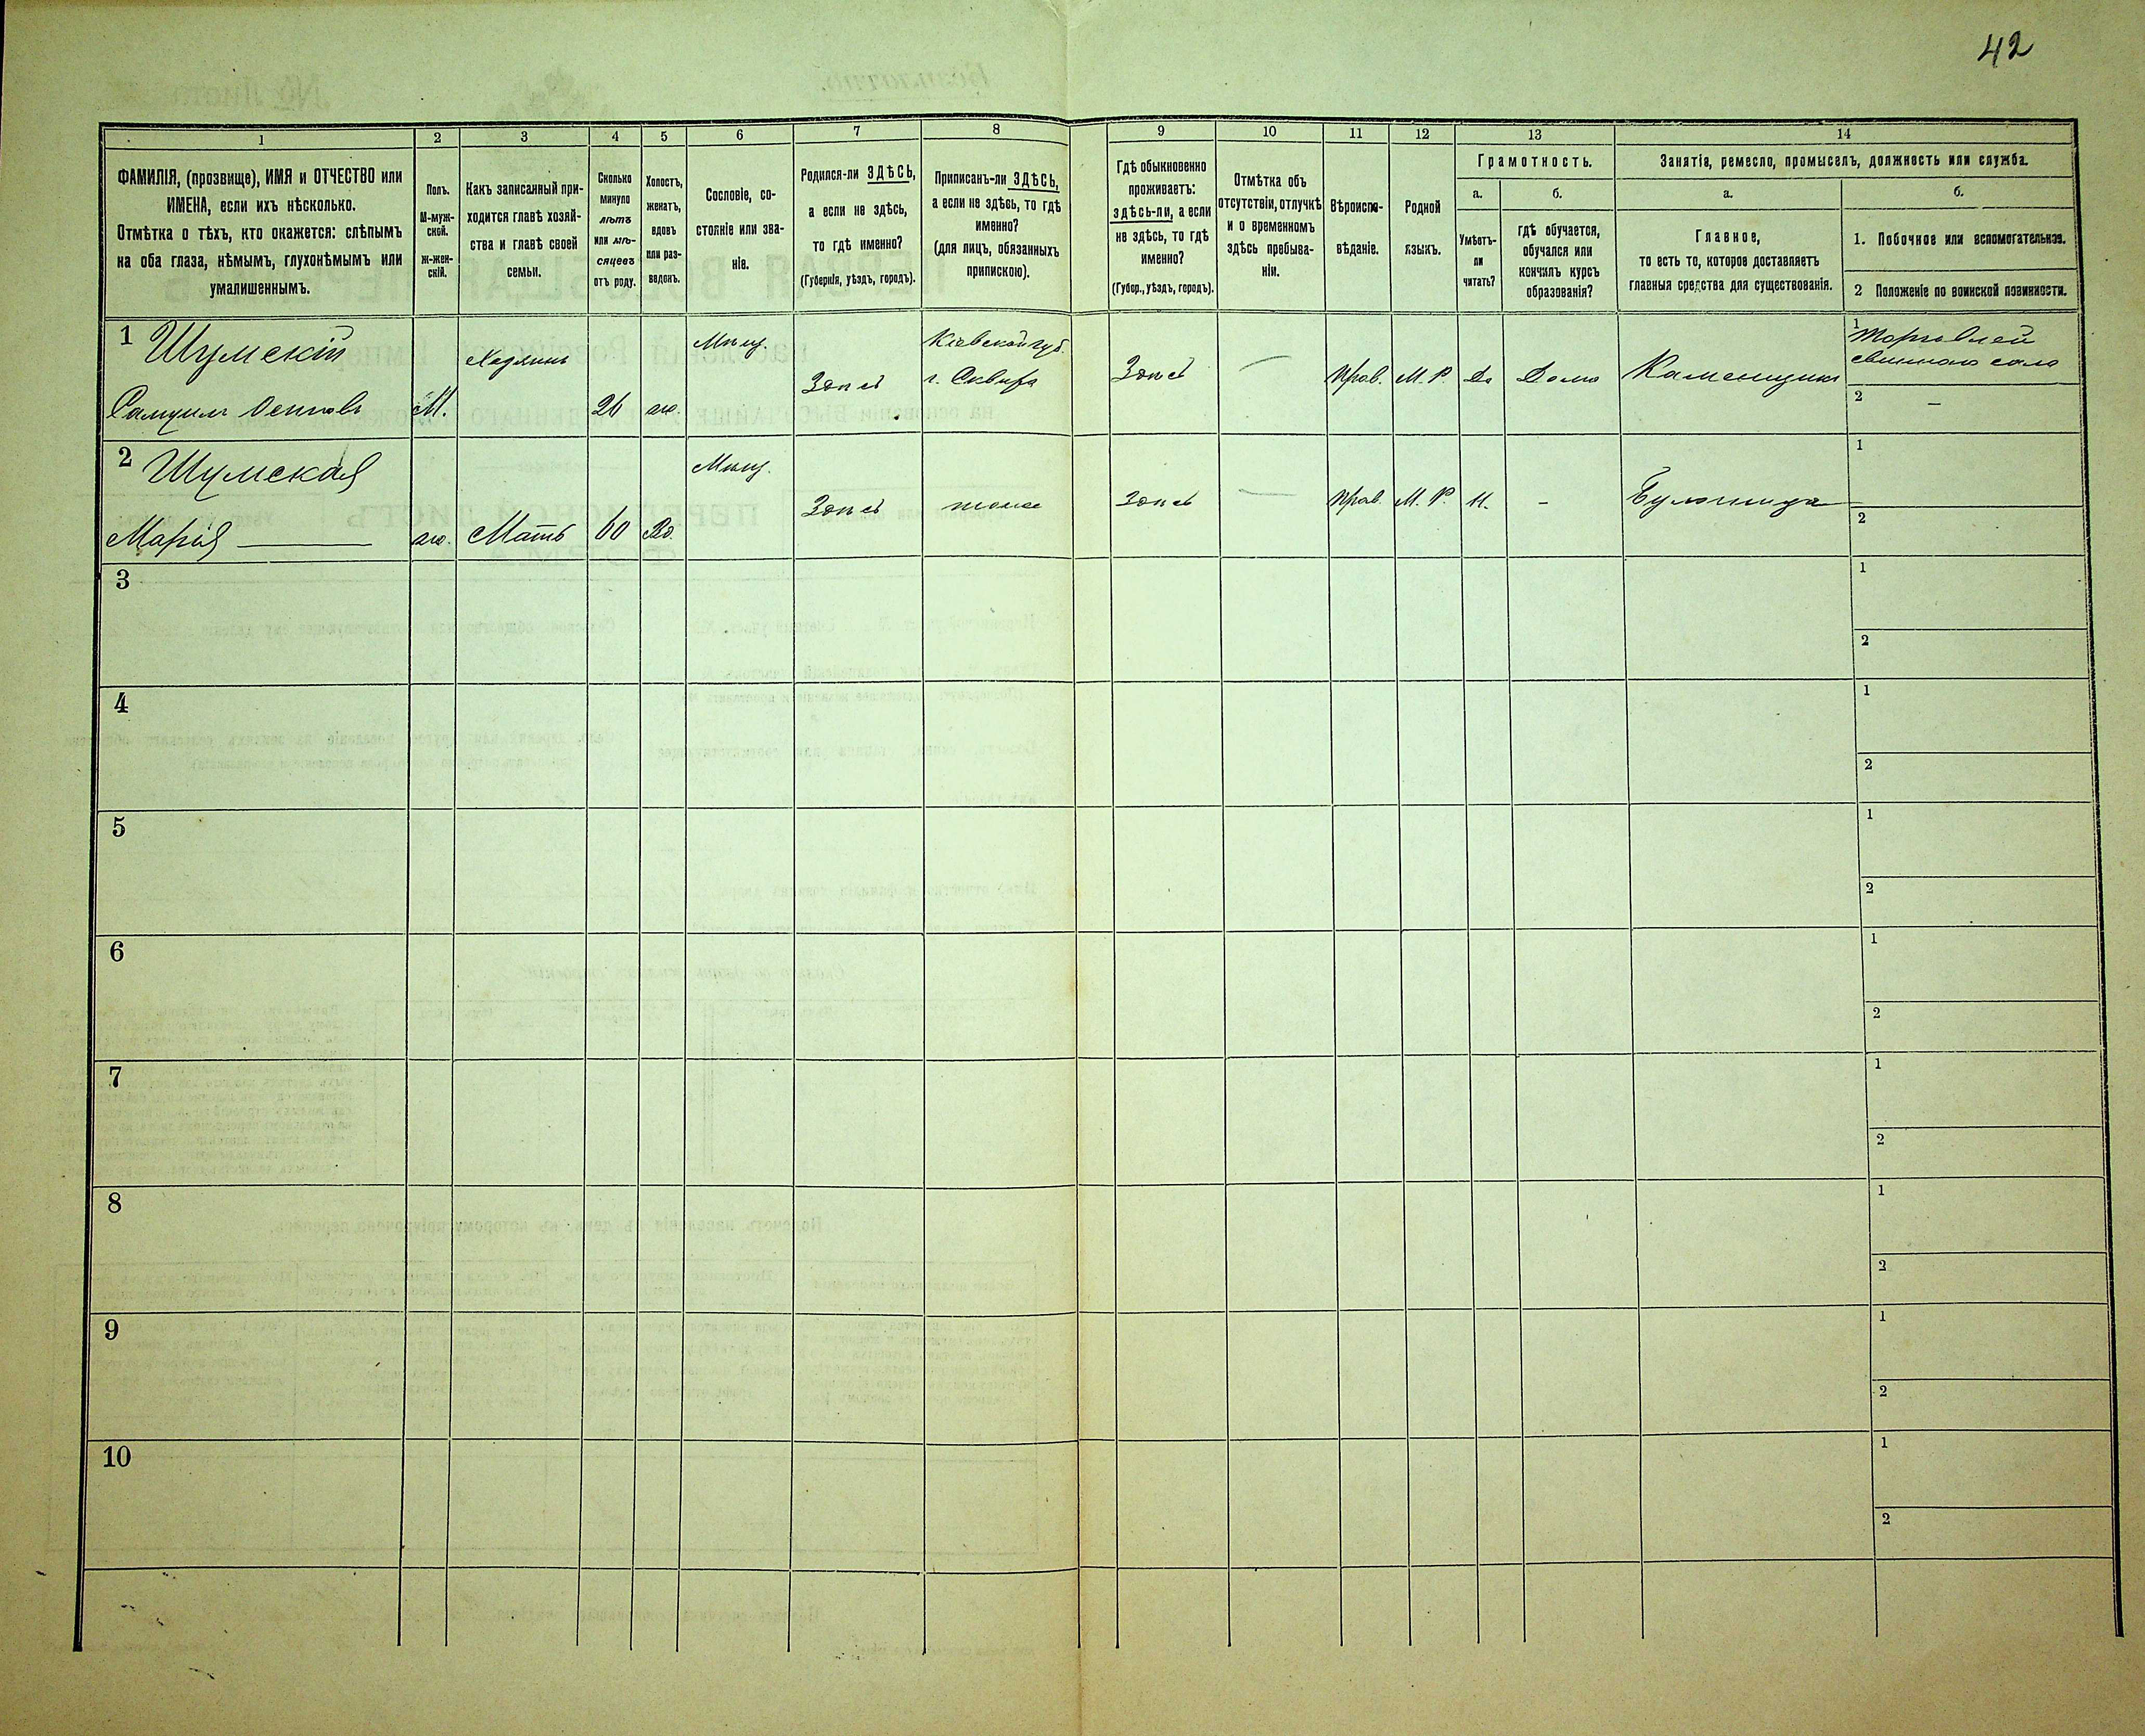 42
1 2 3 4 5 6 7 8 9 10 11 12 13 14
ФАМИЛІЯ, (прозвище), ИМЯ и ОТЧЕСТВО или
ИМЕНА, если ихъ нѣсколько.
Отмѣтка о тѣхъ, кто окажется: слѣпымъ
на оба глаза, нѣмымъ, глухонѣмымъ или
умалишеннымъ.
Полъ.
М-муж-
ской.
Ж-жен-
скій.
Какъ записанный при-
ходится главѣ хозяй-
ства и главѣ своей
семьи.
Сколько
минуло
лѣтъ
или мѣ-
сяцевъ
отъ роду.
Холостъ,
женатъ,
вдовъ
или раз-
веденъ.
Сословіе, со-
стояніе или зва-
ніе.
Родился-ли ЗДѢСЬ,
а если не здѣсь,
то гдѣ именно?
(Губернія, уѣздъ, городъ).
Приписанъ-ли ЗДѢСЬ,
а если не здѣсь, то гдѣ
именно?
(для лицъ, обязанныхъ
припискою).
Гдѣ обыкновенно
проживаетъ:
здѣсь-ли, а если
не здѣсь, то гдѣ
именно?
(Губер., уѣздъ, городъ).
Отмѣтка объ
отсутствіи, отлучкѣ
и о временномъ
здѣсь пребыва-
ніи.
Вѣроиспо-
вѣданіе.
Родной
языкъ.
Грамотность.
а.
Умѣетъ-
ли
читать?
б.
гдѣ обучается,
обучался или
кончилъ курсъ
образованія?
Занятіе, ремесло, промыселъ, должность или служба.
а.
Главное,
то есть то, которое доставляетъ
главныя средства для существованія.
б.
1. Побочное или вспомогательное.
2 Положеніе по воинской повинности.
1 Шумскій
Самуилъ Осиповъ
М.
Хозяинъ
26
ж.
Мѣщ.
Здѣсь
Кіевской губ.
г. Сквира
Здѣсь
—
Прав.
М. Р.
Да
Дома
Каменщикъ
1 Торговлей
свиного сала
2 —
2 Шумская
Марія —
ж.
Мать
60
Вд.
Мѣщ.
Здѣсь
тоже
Здѣсь
—
Прав.
М. Р.
Н.
-
Булочница
1
2
3
1
2
4
1
2
5
1
2
6
1
2
7
1
2
8
1
2
9
1
2
10
1
2